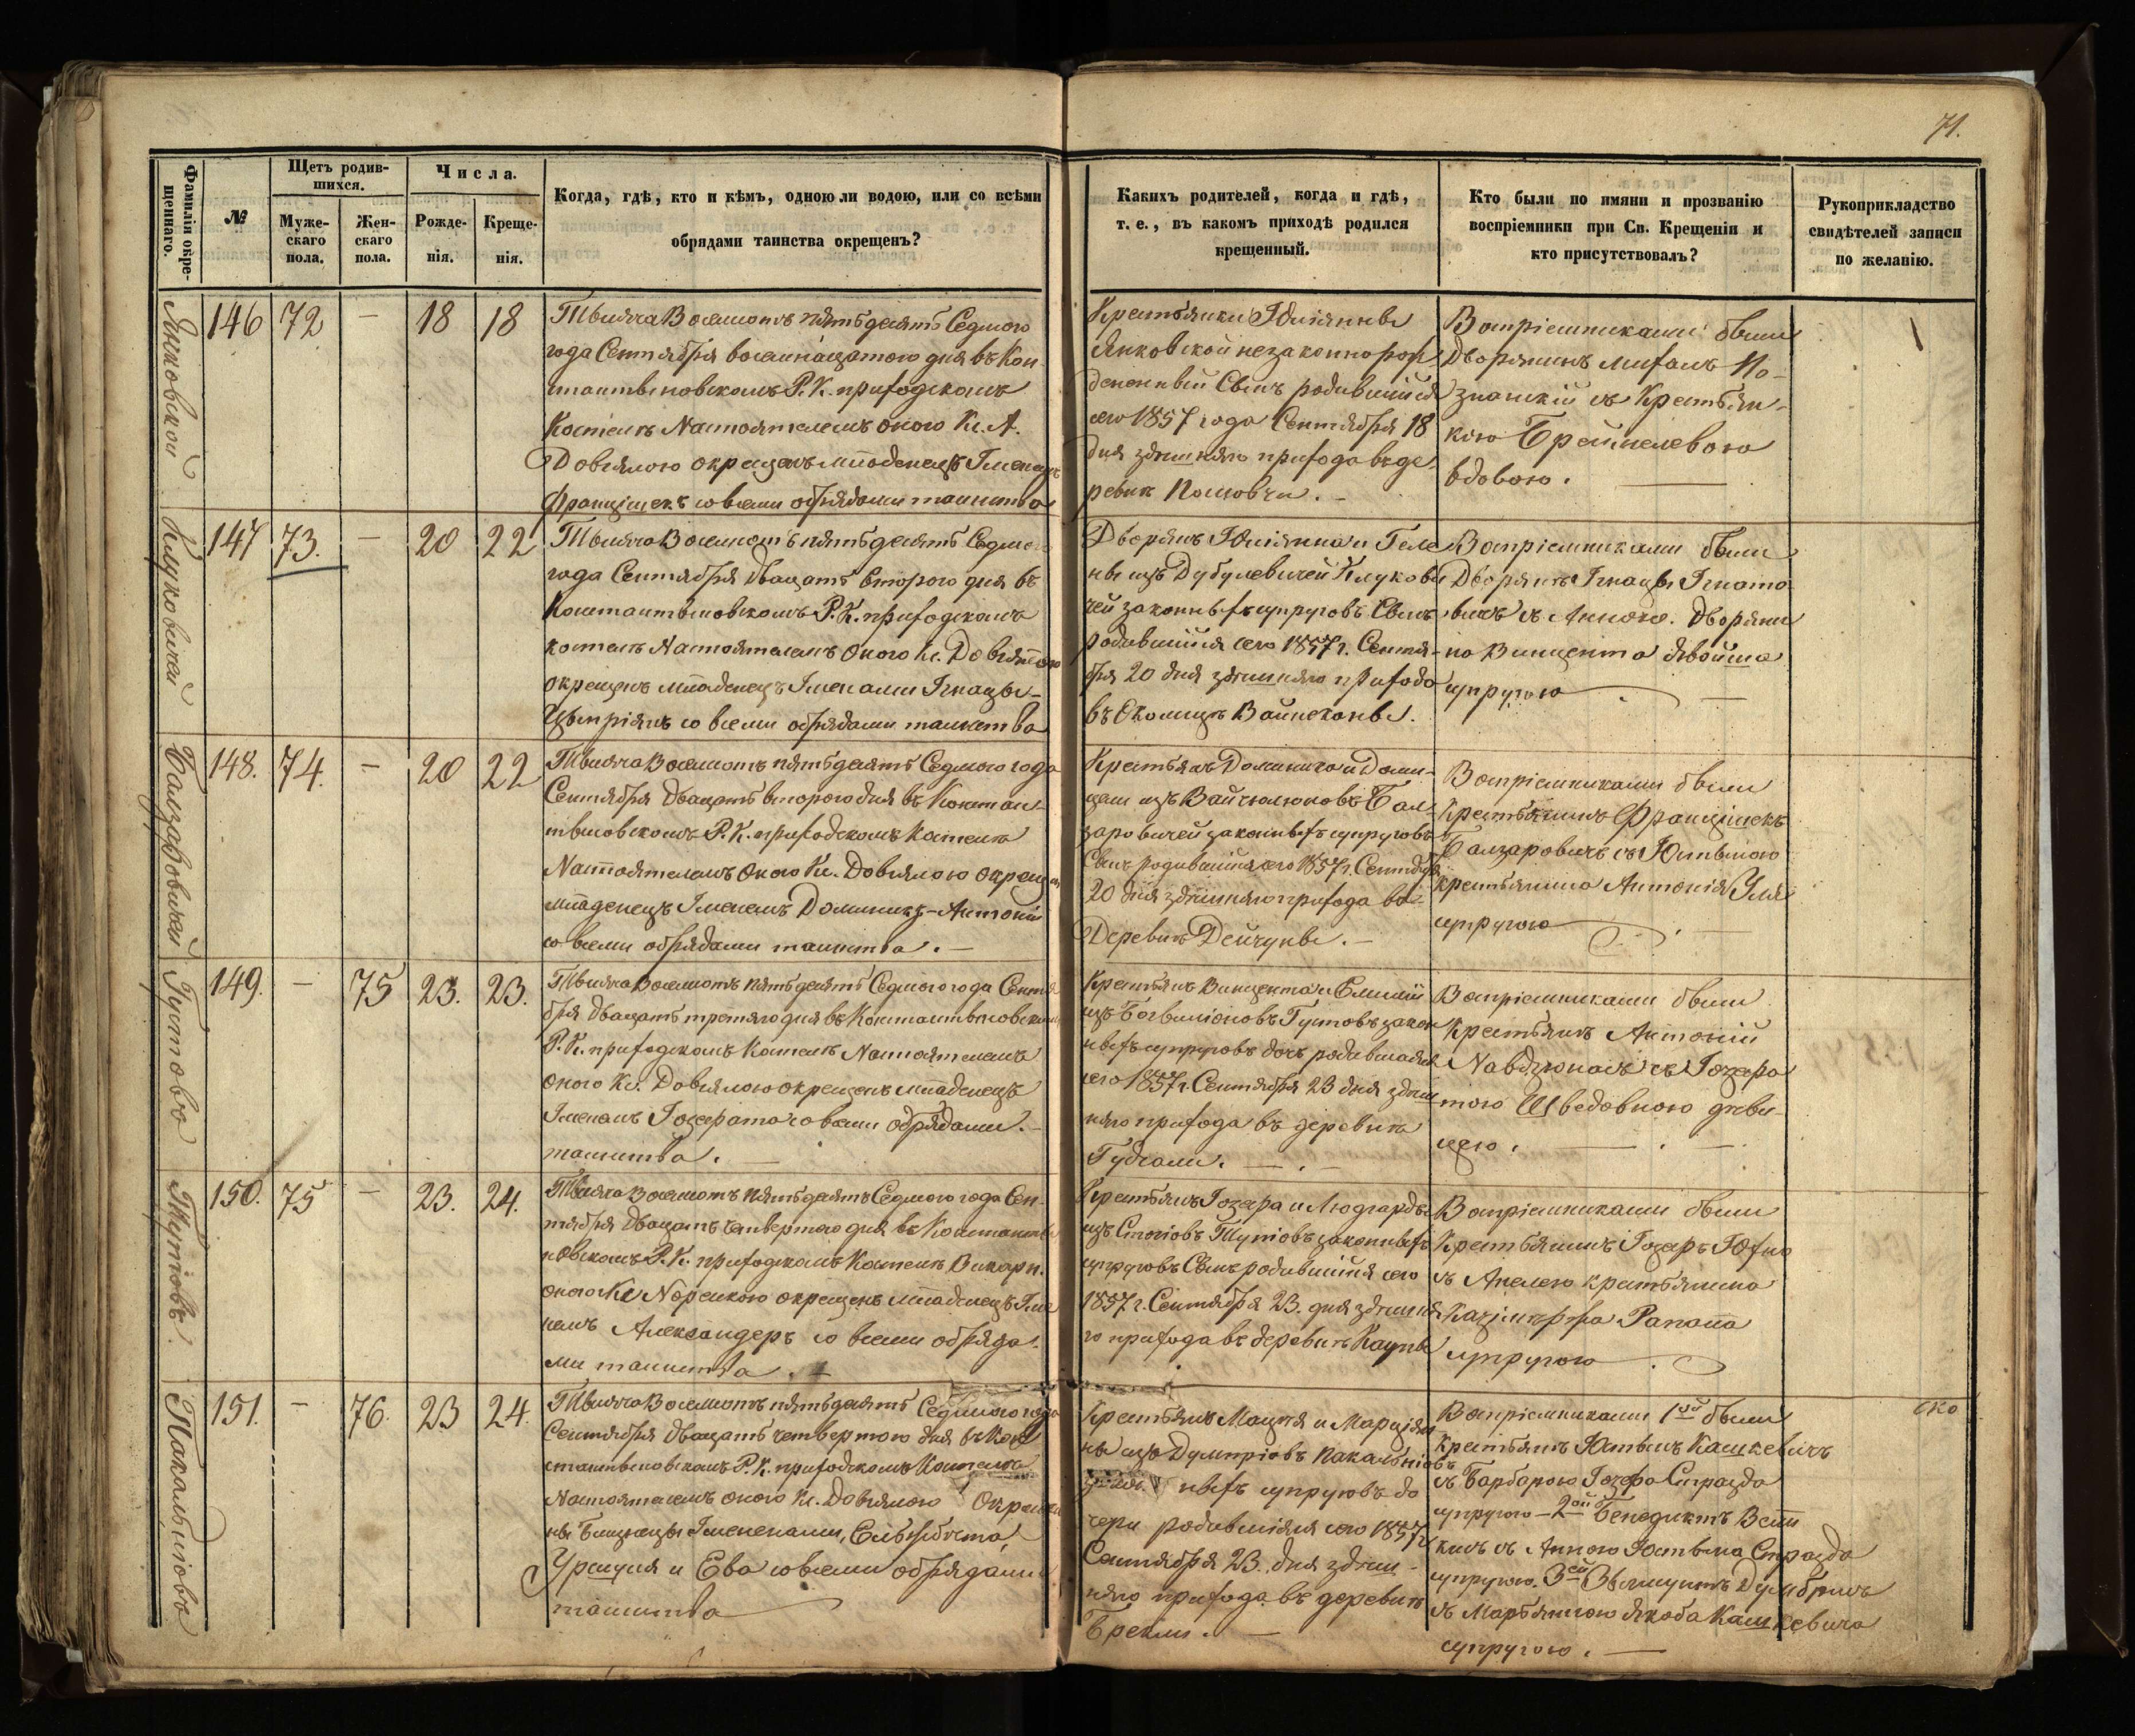 71.
Фамиліи окре-
щеннаго.
№
Щетъ родив-
шихся.
Муже-
скаго
пола.
Жен-
скаго
пола.
Числа.
Рожде-
нія.
Креще-
нія.
Когда, гдѣ, кто и кѣмъ, одною ли водою, или со всѣми
обрядами таинства окрещенъ?
Какихъ родителей, когда и гдѣ,
т. е., въ какомъ приходѣ родился
крещенный.
Кто были по имяни и прозванію
воспріемники при Св. Крещеніи и
кто присутствовалъ?
Рукоприкладство
свидѣтелей записи
по желанію.
Янковской
146 72 — 18 18
Тысяча Восемсотъ пятьдесятъ Седмого
года Сентября восемнацатого дня въ Кон
стантыновскомъ Р. К. приходскомъ
Костелѣ Настоятелемъ оного Кс. А.
Довялою окрещенъ младенецъ Іменемъ
Францішекъ со всеми обрядами таинства
Крестьянки Юліянны
Янковской незаконнорож
денный Сынъ родившійся
сего 1857 года Сентября 18
дня здѣшняго прихода въ де
ревнѣ
Воспріемниками были
Дворянинъ Михалъ По-
знанскій съ Крестьян-
кою
вдовою.
Клуковичей
147 73. — 20 22
Тысяча Восемсотъ пятьдесятъ Седмого
года Сентября двацать второго дня въ
Константыновскомъ Р. К. приходскомъ
костелѣ Настоятелемъ оного Кс. Довялою
окрещенъ младенецъ Іменами Ігнацы-
Цыпріянъ со всеми обрядами таинства
Дворянъ Юліянна и Геле
ны изъ Дубулевичей Клукови
чей законныхъ супруговъ Сынъ
родившійся сего 1857 г. Сентя-
бря 20 дня здѣшняго прихода
въ Околицѣ Войнеконы.
Воспріемниками были
Дворянъ Ігнацы Ігнато
вичъ съ Анною. Дворяни
на Винцента Явойша
супругою
Балзаровичей
148. 74. — 20 22
Тысяча Восемсотъ пятьдесятъ Седмого года
Сентября двацать второго дня въ Констан
тыновскомъ Р. К. приходскомъ костелѣ
Настоятелемъ оного Кс. Довялою окрещенъ
младенецъ Іменемъ Доминикъ-Антоній
со всеми обрядами таинства. —
Крестьянъ Доминика и Доми-
цели изъ Вайчюлюновъ Бал
заровичей законныхъ супруговъ
Сынъ родившійся сего 1857 г. Сентября
20 дня здѣшняго прихода въ
Деревнѣ Дейчуны. —
Воспріемниками были
Крестьянинъ Францішекъ
Балзаровичъ съ Юстыною
крестьянина Антонія Уля
супругою
Густовъ
149. — 75 23. 23.
Тысяча Восемсотъ пятьдесятъ Седмого года Сентя
бря двацать третяго дня въ Константыновскомъ
Р. К. приходскомъ Костелѣ Настоятелемъ
оного Кс. Довялою окрещенъ младенецъ
Іменемъ Іозефата со всеми обрядами.
таинства. —
Крестьянъ Винцента и Емиліи
изъ Богвиліоновъ Густовъ закон
ныхъ супруговъ дочь родившаяся
сего 1857 г. Сентября 23 дня здѣш
няго прихода въ деревнѣ
Гудгали. — . —
Воспріемниками были
Крестьянъ Антоній
Навдзюнасъ съ Іозефа
тою Шведовною дѣви
цею. — . —
Тутіовъ.
150. 75 — 23. 24.
Тысяча Восемсотъ пятьдесятъ Седмого года Сен
тября двацать четвертого дня въ Константы
новскомъ Р. К. приходскомъ Костелѣ Викари.
оного Кс Норейкою окрещенъ младенецъ Іме
немъ Александеръ со всеми обряда.
ми таинства.
Крестьянъ Іозефа и Людгарды
изъ Стогіовъ Тутіовъ законныхъ
супруговъ Сынъ родившійся сего
1857 г. Сентября 23. дня здѣшня
го прихода въ деревнѣ Кауны
Воспріемниками были
Крестьянинъ Іозефъ Юхно
съ Анелею крестьянина
Казімержа Рапала
супругою
Пакальніовъ
151. — 76. 23 24.
Тысяча Восемсотъ пятьдесятъ Седмого года
Сентября двацать четвертого дня въ Кон
стантыновскомъ Р. К. приходскомъ Костелѣ
Настоятелемъ оного Кс. Довялою Окрещен
ны Близнецы Іменами, Ельжбѣта,
Урсшуля и Ева со всеми обрядами
таинства
Крестьянъ Мацѣя и Марціян
ны изъ Думпріовъ Пакальніовъ
ныхъ супруговъ до
чери родившіяся сего 1857 г
Сентября 23. дня здѣш-
няго прихода въ деревнѣ
Брекли. —
Воспріемниками 1ый были
Крестьянъ Юстынъ Кашкевичъ
съ Барбарою Іозефа Стразда
супругою — 2ой Бенедиктъ
съ Анною Юстына Стразда
супругою. 3ей Зыгмунтъ Думбрисъ
съ Мартьянною Якоба Кашкевича
супругою. —